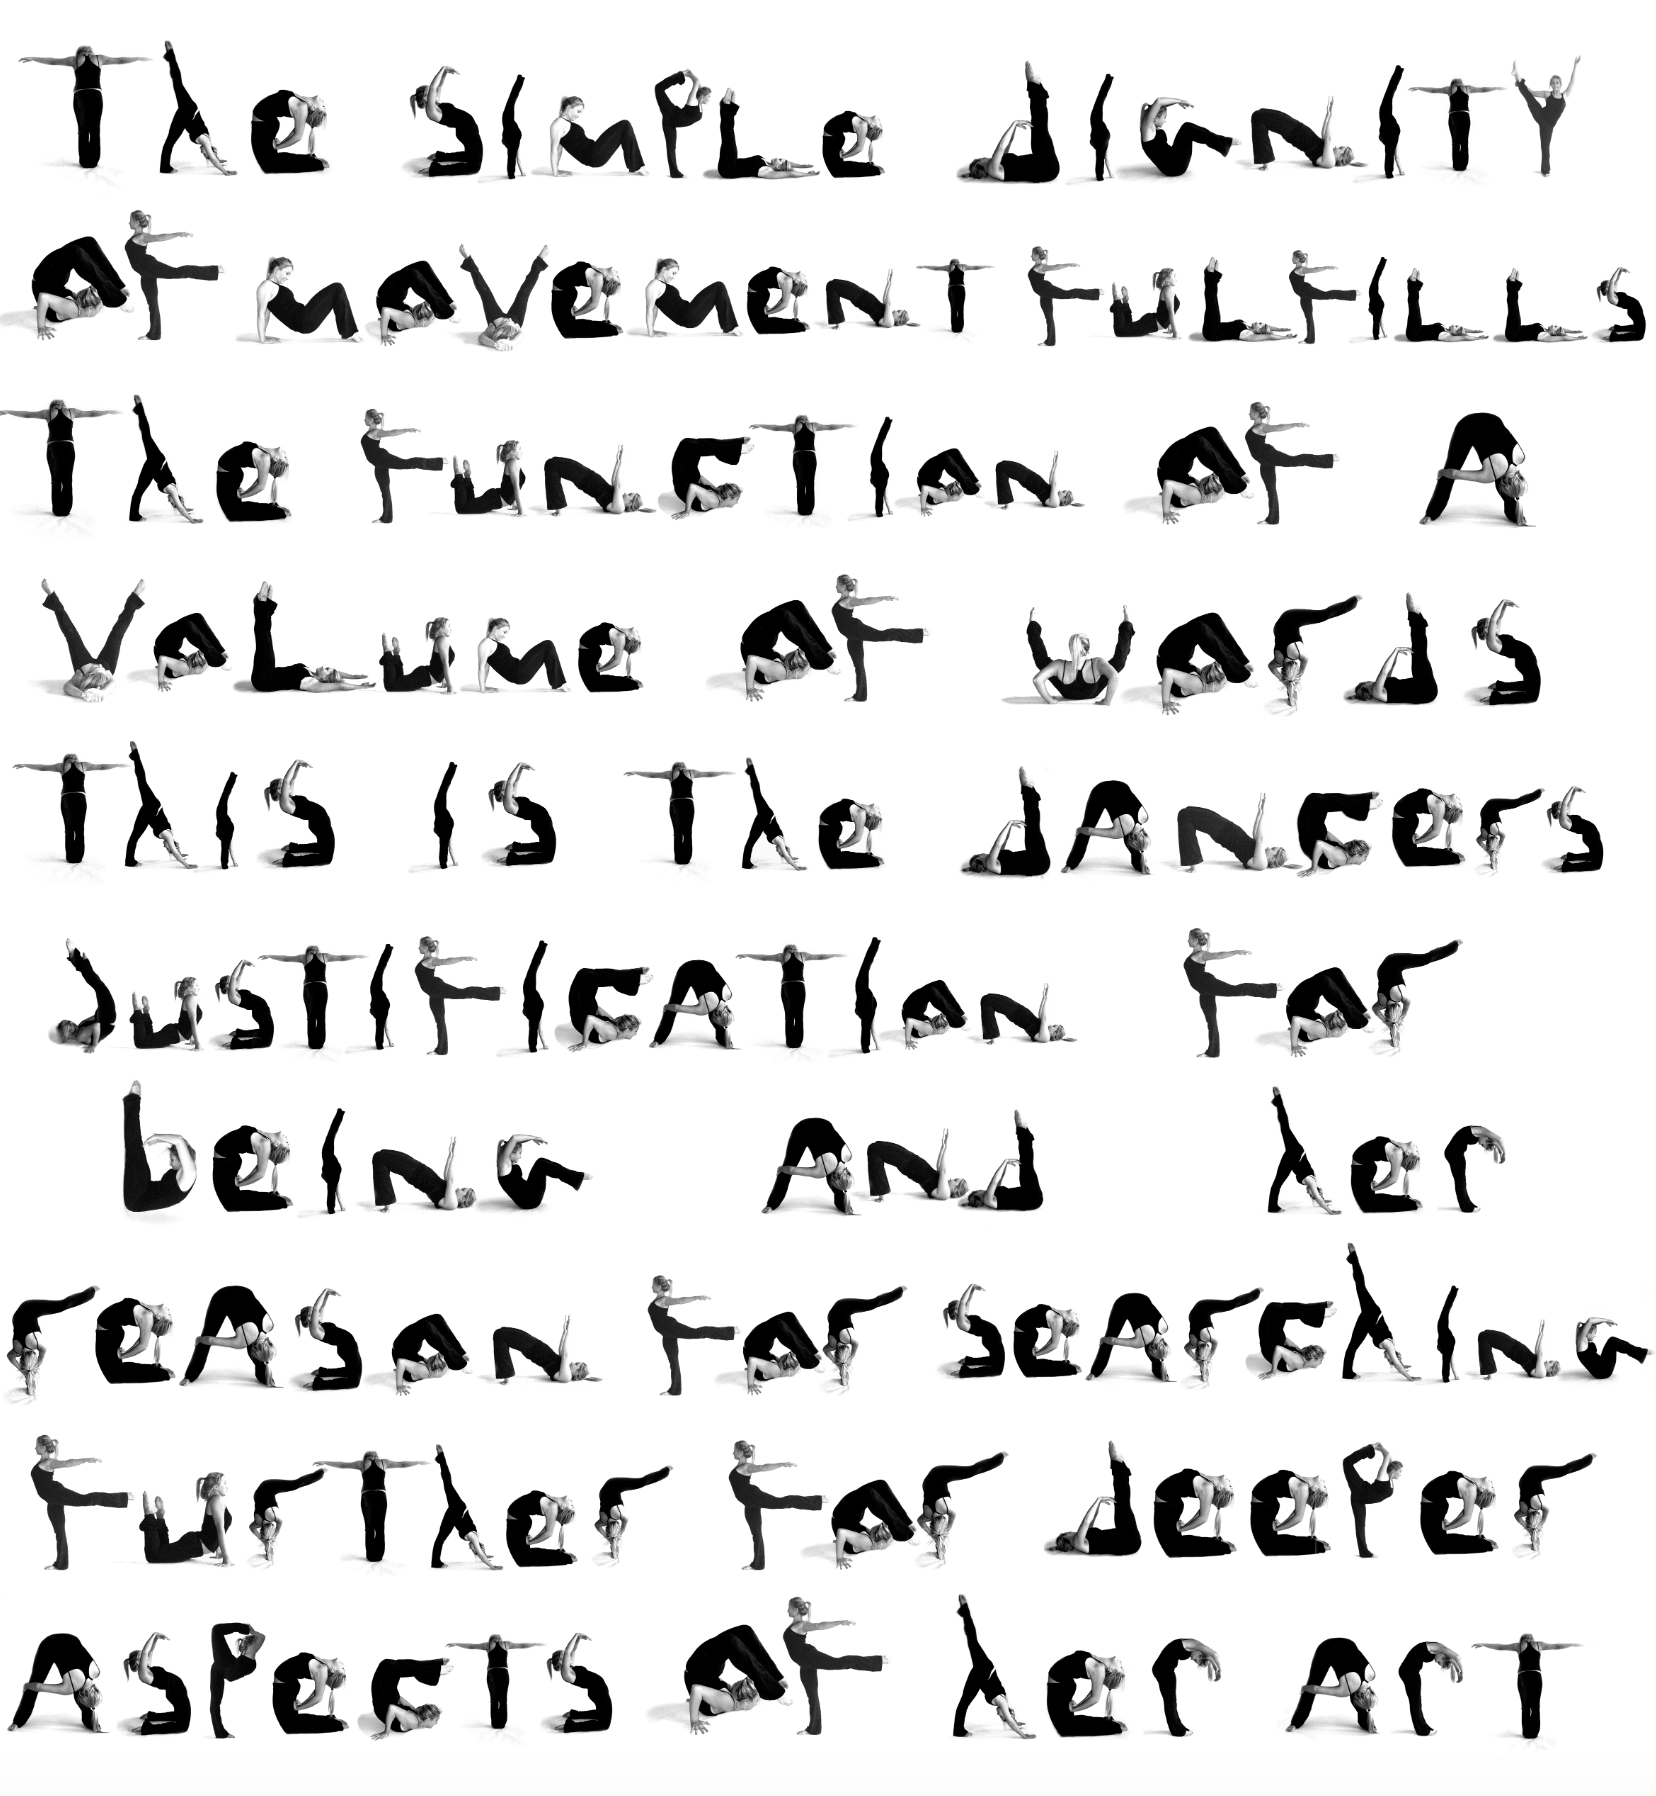 The simple dignity
of movement fulfills
the function of a
volume of words
This is the dancers
justification for
being and her
reason for searching
further for deeper
aspects of her art